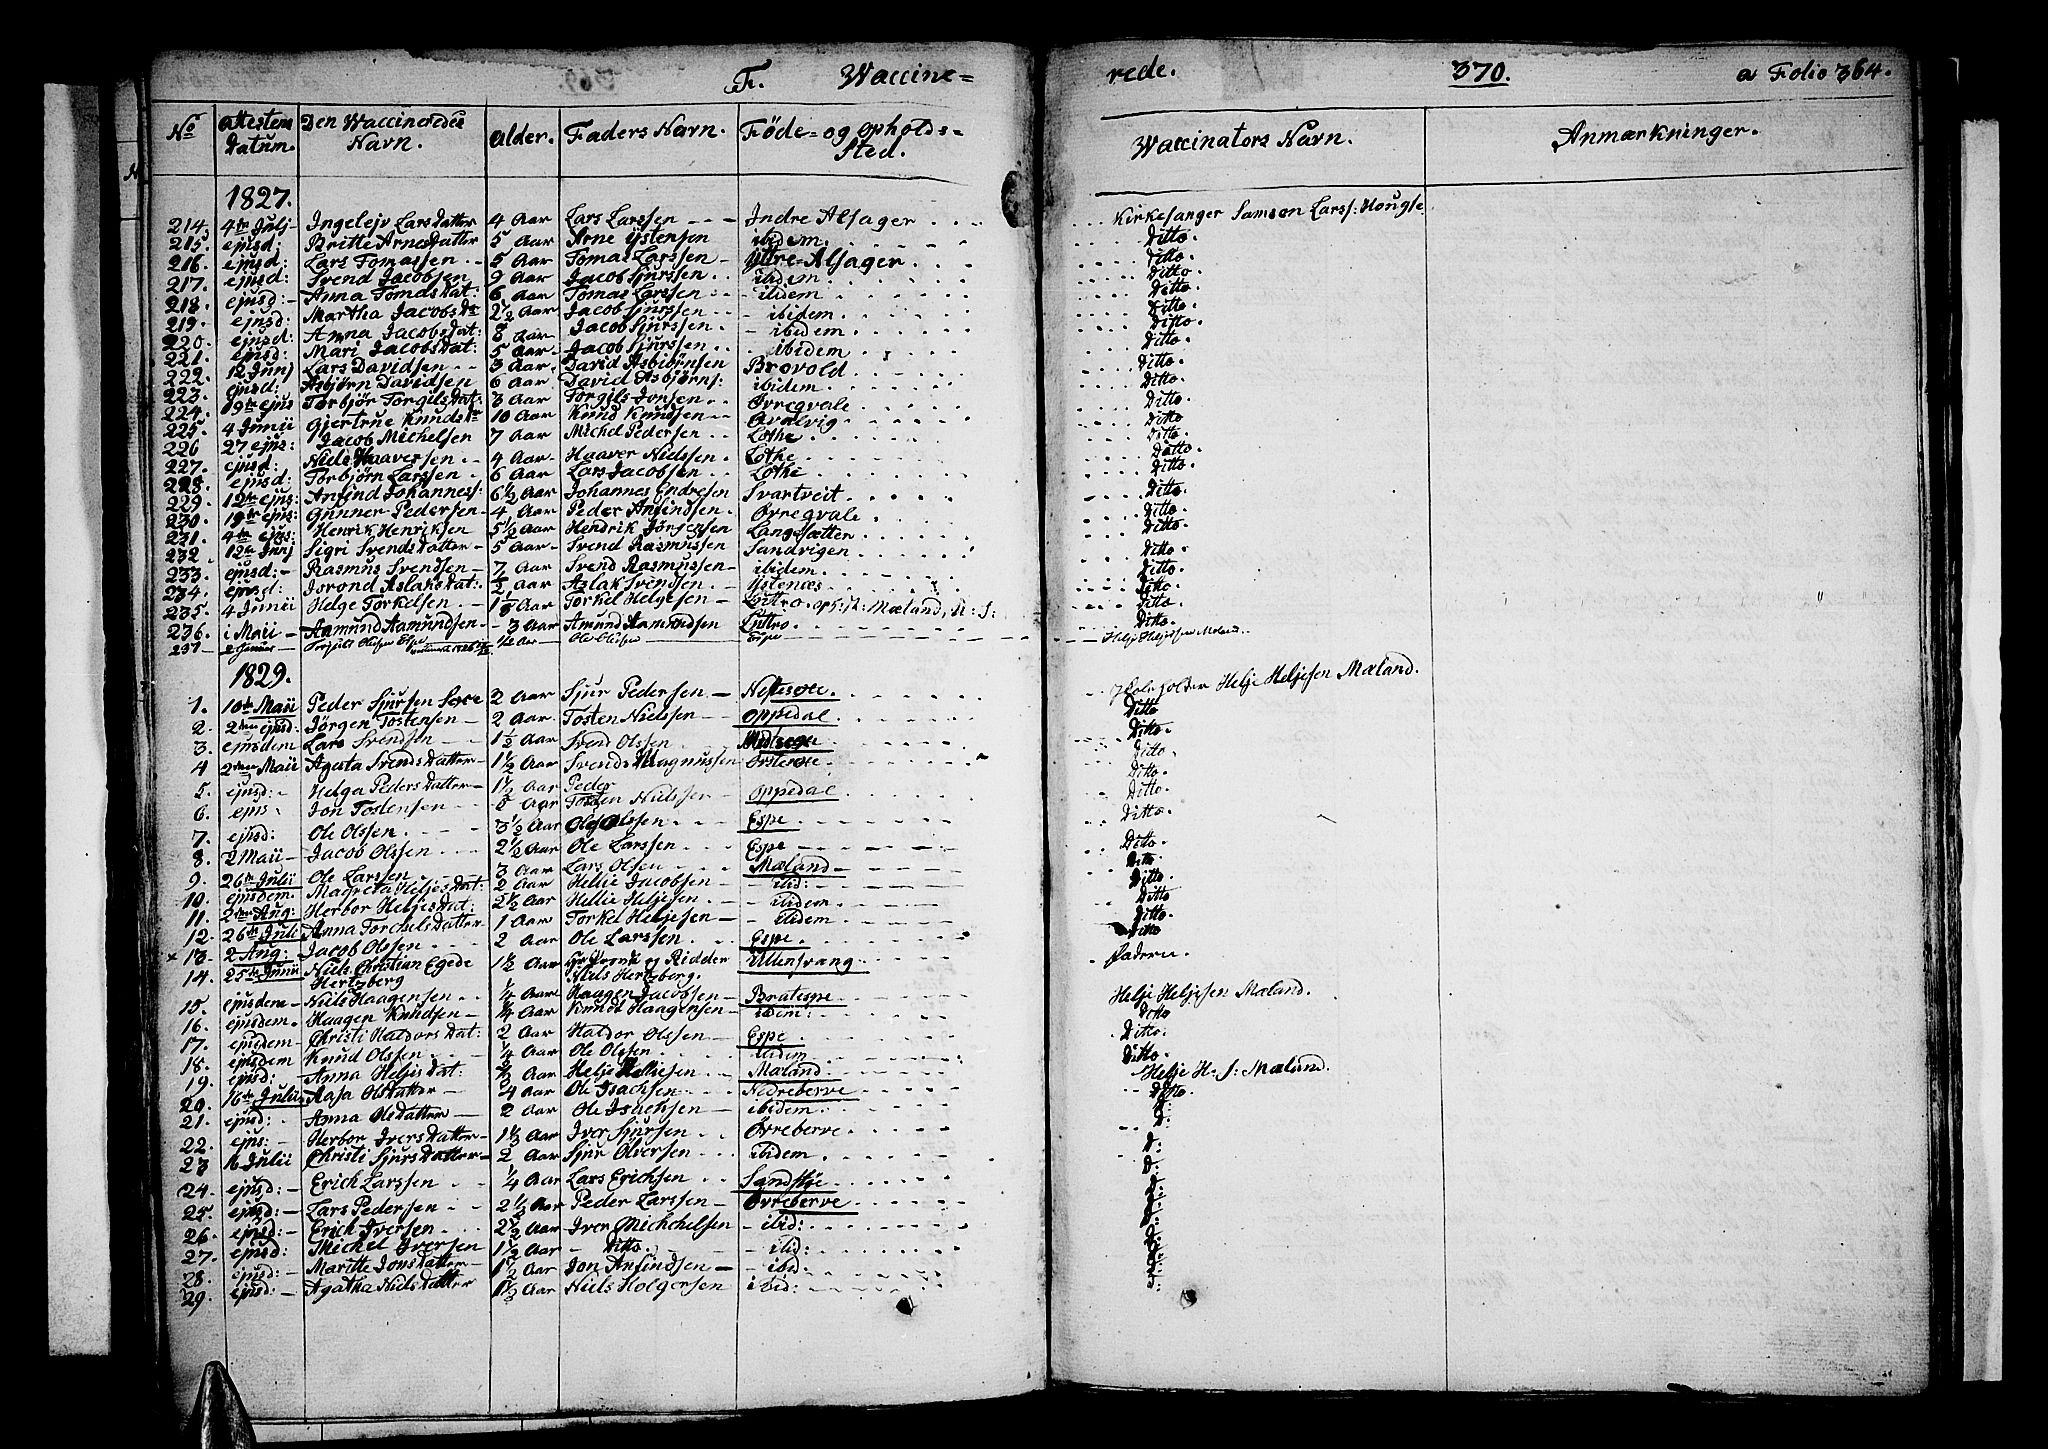 F. Waccine= rede. 370. a Folio 364.
No Attestens Datum. Den Waccineredes Navn. Alder. Faders Navn. Føde= og Opholds= Sted. Waccinators Navn. Anmærkninger.
1827.
214. 4de Julj Ingelejv Larsdatter 4 Aar Lars Larssen Indre Alsager Kirkesanger Samson Larss: Hougse
215. ejusd: Britte Arnedatter 5 Aar Arne Ystensen ibidem. Ditto.
216. ejusd: Lars Tomassen 5 Aar Tomas Larssen Yttre=Alsager Ditto.
217. ejusd: Svend Jacobsen 2 Aar Jacob Sjurssen ibidem Ditto.
218. ejusd: Anna Tomasdat: 6 Aar Tomas Larssen ibidem Ditto.
219. ejusd: Martha Jacobsdr 2½ Aar Jacob Sjurssen ibidem Ditto.
220. ejusd: Anna Jacobsdat: 8 Aar Jacob Sjurssen ibidem Ditto.
221. ejusd: Mari Jacobsdat: 5 Aar Jacob Sjurssen ibidem Ditto.
222. 12 Junj Lars Davidsen 3 Aar David Asbiörnsen Brovold Ditto.
223. ejusd: Asbjørn Davidsen 6 Aar David Asbjørns: ibidem Ditto.
224. 19de ejus Torbjør Torgilsdat: 3 Aar Torgils Jonsen Øvreqvale Ditto.
225. 4 Junii Gjertrue Knudsdr 10 Aar Knud Knudsen Qvalvig Ditto.
226 27 ejus: Jacob Michelsen 7 Aar Michel Pedersen Lothe Ditto.
227. ejusd: Niels Haaversen 4 Aar Haaver Nielssen Lothe Ditto.
228. ejusd: Torbjørn Larssen 6 Aar Lars Jacobsen Lothe Ditto.
229. 12te ejus: Anfind Johanness: 6½ Aar Johannes Endresen Svartveit Ditto.
230. 19de ejus: Gunner Pedersen 4 Aar Peder Anfindsen Øvreqvale Ditto.
231. 4de ejus: Henrik Henriksen 5½ Aar Hendrik Jørgensen Langesætter Ditto.
232. 12te Junj Sigri Svendsdatter 5 Aar Svend Rasmussen Sandvigen Ditto.
233. ejusd: Rasmus Svendsen 7 Aar Svend Rasmussen ibidem. Ditto.
234. ejusd: Isrond Aslaksdat: ½ Aar Aslak Svendsen Ystenæs Ditto.
235. 4 Junii Helge Torkelsen Torkel Helgesen Luttro. Mæland, Ditto.
236. i Maii Aamund Aamundsen 3 Aar Amund Aamundsen Luttro. Ditto.
237 Ole Olssen Espe Helje Heljesen Mæland.
1829.
1. 10de Maii Peder Sjursen Sexe 2 Aar Sjur Pedersen Helje Heljesen Mæland.
2. 2den ejusd: Jørgen Tostensen 2 Aar Tosten Nielssen Oppedal Ditto
3. ejusdem Lars Svendsen 1½ Aar Svend Olssen Ditto.
4 2den Maii Agata Svendsdatter 1½ Aar Svend Magnussen Ditto.
5. ejusd: Helga Pedersdatter 1½ Aar Peder Ditto.
6. ejus Jon Tostensen 5 Aar Tosten Nielssen Oppedal Ditto.
7. ejusd: Ole Olssen 3½ Aar Ole Olssen Espe Ditto.
8. 2 Maii Jacob Olssen 2½ Aar Ole Larssen Espe Ditto.
9. 26de Julii Ole Larssen 3 Aar Lars Olsen Mæland Ditto.
10. ejusdem. Magreta Heljesdat: 2 Aar Hellie Jacobsen ibid: Ditto.
11. 2den Aug: Herbor Heljesdat: 2½ Aar Hellie Heljesen ibidem. Ditto.
12. 26de Juli Anna Torchelsdatter 1 Aar Torkel Heljesen ibidem Ditto.
× 13. 2 Aug: Jacob Olssen 2 Aar Ole Larssen Espe. Ditto
14. 25de Junii Niels Christian Egede Hertzberg 1½ Aar Hr Provst og Ridder Niels Hertzberg. Ullensvang Faderen.
15. ejusdem Niels Haagensen ¼ Aar Haagen Jacobsen Bratespe Helje Heljesen Mæland.
16. ejusdem. Haagen Knudsen ¼ Aar Knud Haagensen ibidem: Ditto
17. ejusdem Christi Haldorsdat: 2 Aar Haldor Olssen Espe Ditto.
18. ejusdem Knud Olssen ¼ Aar Ole Olssen ibidem Ditto.
19. ejusd: Anna Heljesdat: Aar Helje Helliesen Mæland. Helje H. S: Mæland.
20. 16de Julii Aasa Olsdatter ¼ Aar Ole Isachsen Nedreberve Ditto.
21. ejusd: Anna Olsdatter 2 Aar Ole Isachsen ibidem D:
22. ejus: Herbor Iversdatter 1½ Aar Iver Sjursen Øvreberve D:
23 16 Julii Christi Sjursdatter 2 Aar Sjur Olversen ibidem D:
24. ejusd: Erich Larssen ¼ Aar Lars Erichsen Sandstøe D:
25. ejusd: Lars Pedersen 2½ Aar Peder Larssen Øvreberve D:
26. ejusd: Erich Iversen 2½ Aar Iver Michchelsen ibid: D:
27. ejusd: Michel Iversen 1½ Aar Ditto. ibid: D:
28. ejusd: Maritte Jonsdatter 1½ Aar Jon Anfindsen ibid: D:
29. ejusd: Agatha Nielsdatter 1½ Aar Niels Holgersen ibid: D: